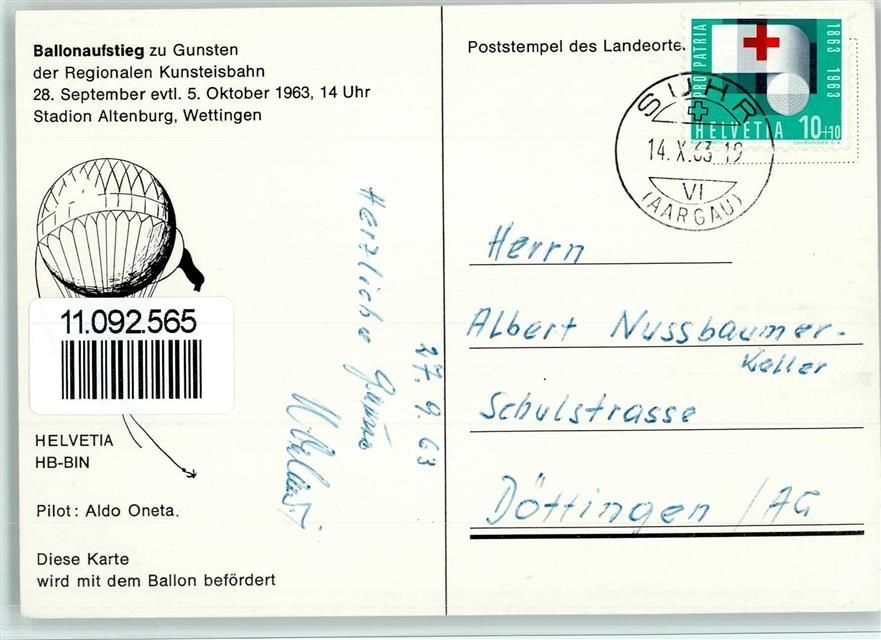 Ballonaufstieg zu Gunsten
der Regionalen Kunsteisbahn
28. September evtl. 5. Oktober 1963, 14 Uhr
Stadion Altenburg, Wettingen
11.092.565
HELVETIA
HB-BIN
Pilot: Aldo Oneta.
Diese Karte
wird mit dem Ballon befördert
Herzliche
27.9.63
Poststempel des Landeorte
PRO PATRIA
1863 1963
HELVETIA 10+10
COURVOISIER S.A.
SUHR
14.X.63-19
VI
(AARGAU)
Herrn
Albert Nussbaumer-
Keller
Schulstrasse
Döttingen / AG